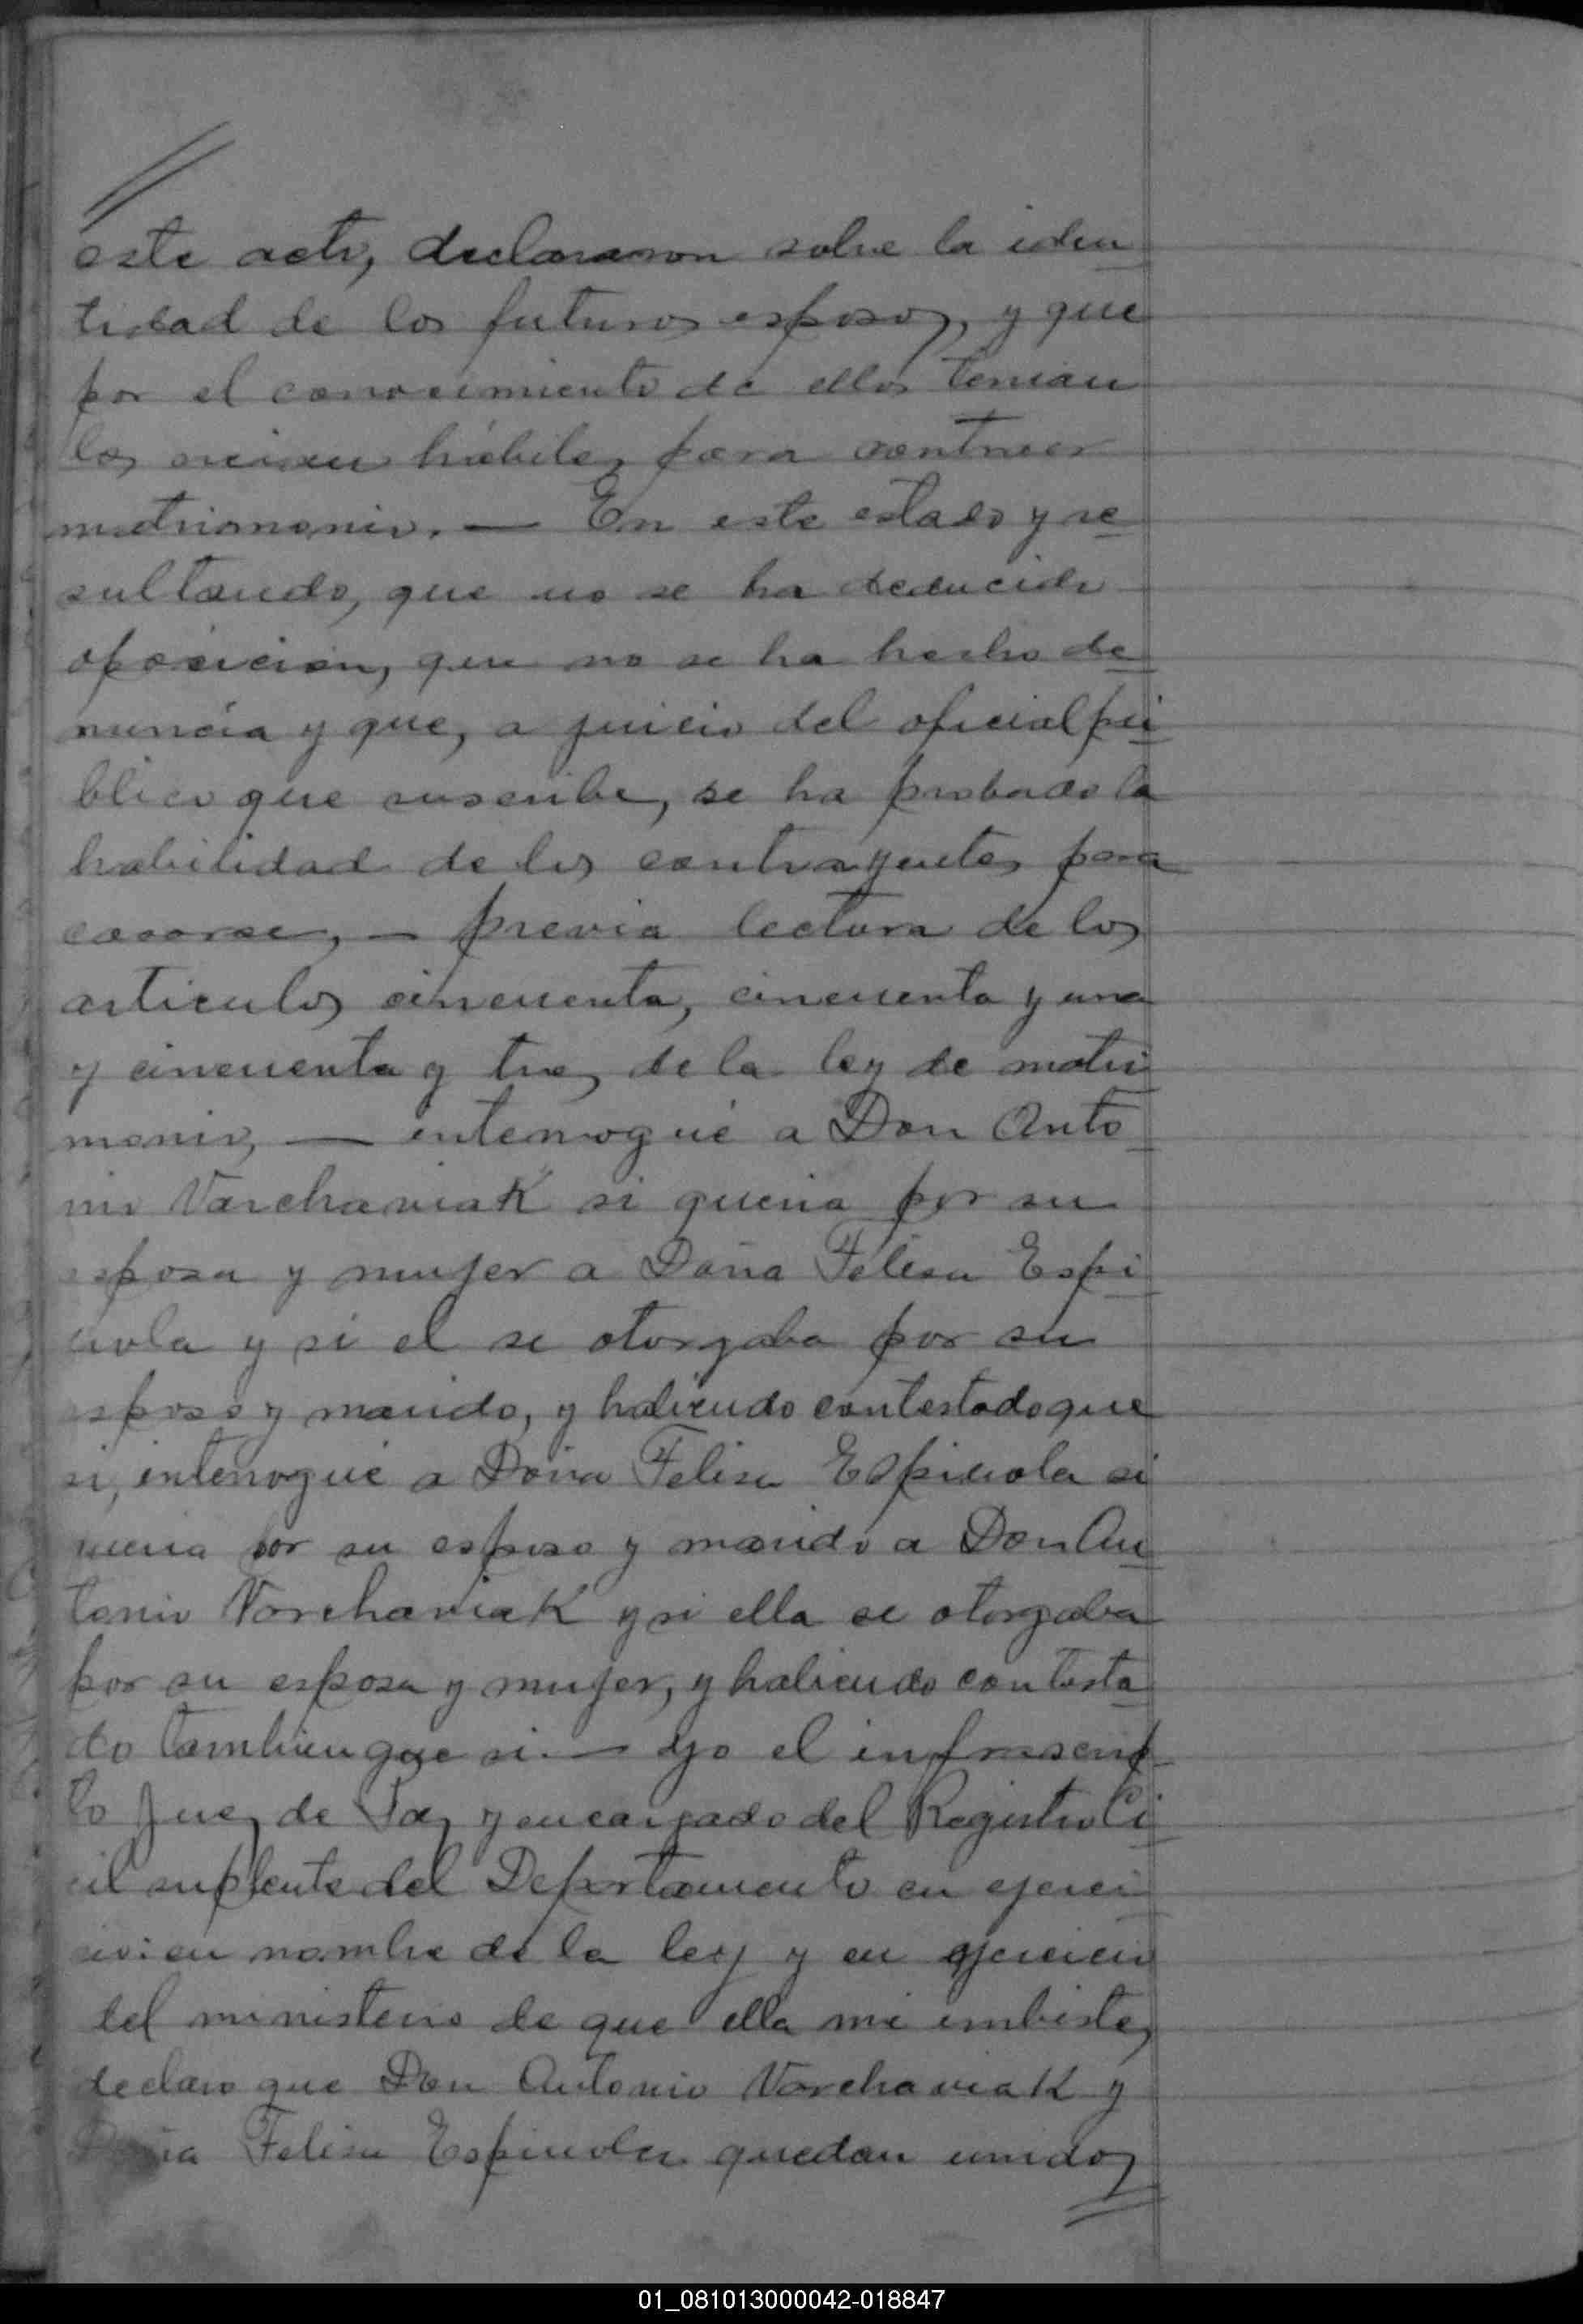 //
este acto, declararon sobre la iden
tidad de los futuros esposos, y que
por el conocimiento de ellos tenian
los creian hábiles para contraer
matrimonio. — En este estado y re
sultando, que no se ha deducido
oposicion, que no se ha hecho de
nuncia y que, a juicio del oficial pú
blico que suscribe, se ha probado la
habilidad de los contrayentes para
casarse, — previa lectura de los
articulos cincuenta, cincuenta y una
y cincuenta y tres, de la ley de matri
monio, — interrogué a Don Anto
nio Varchaviak si queria por su
esposa y mujer a Doña Felisa Espi
nola y si el se otorgaba por su
esposo y marido, y habiendo contestado que
si, interrogué a Doña Felisa Espinola si
queria por su esposo y marido a Don An
tonio Varchaviak y si ella se otorgaba
por su esposa y mujer, y habiendo contesta
do tambien que si. — Yo el infrascrip
to Juez de Paz y encargado del Registro Ci
vil suplente del Departamento en ejerci
cio: en nombre de la ley y en ejercicio
del ministerio de que ella me imbiste,
declaro que Don Antonio Varchaviak y
Doña Felisa Espinola quedan unidos
//
01_081013000042-018847